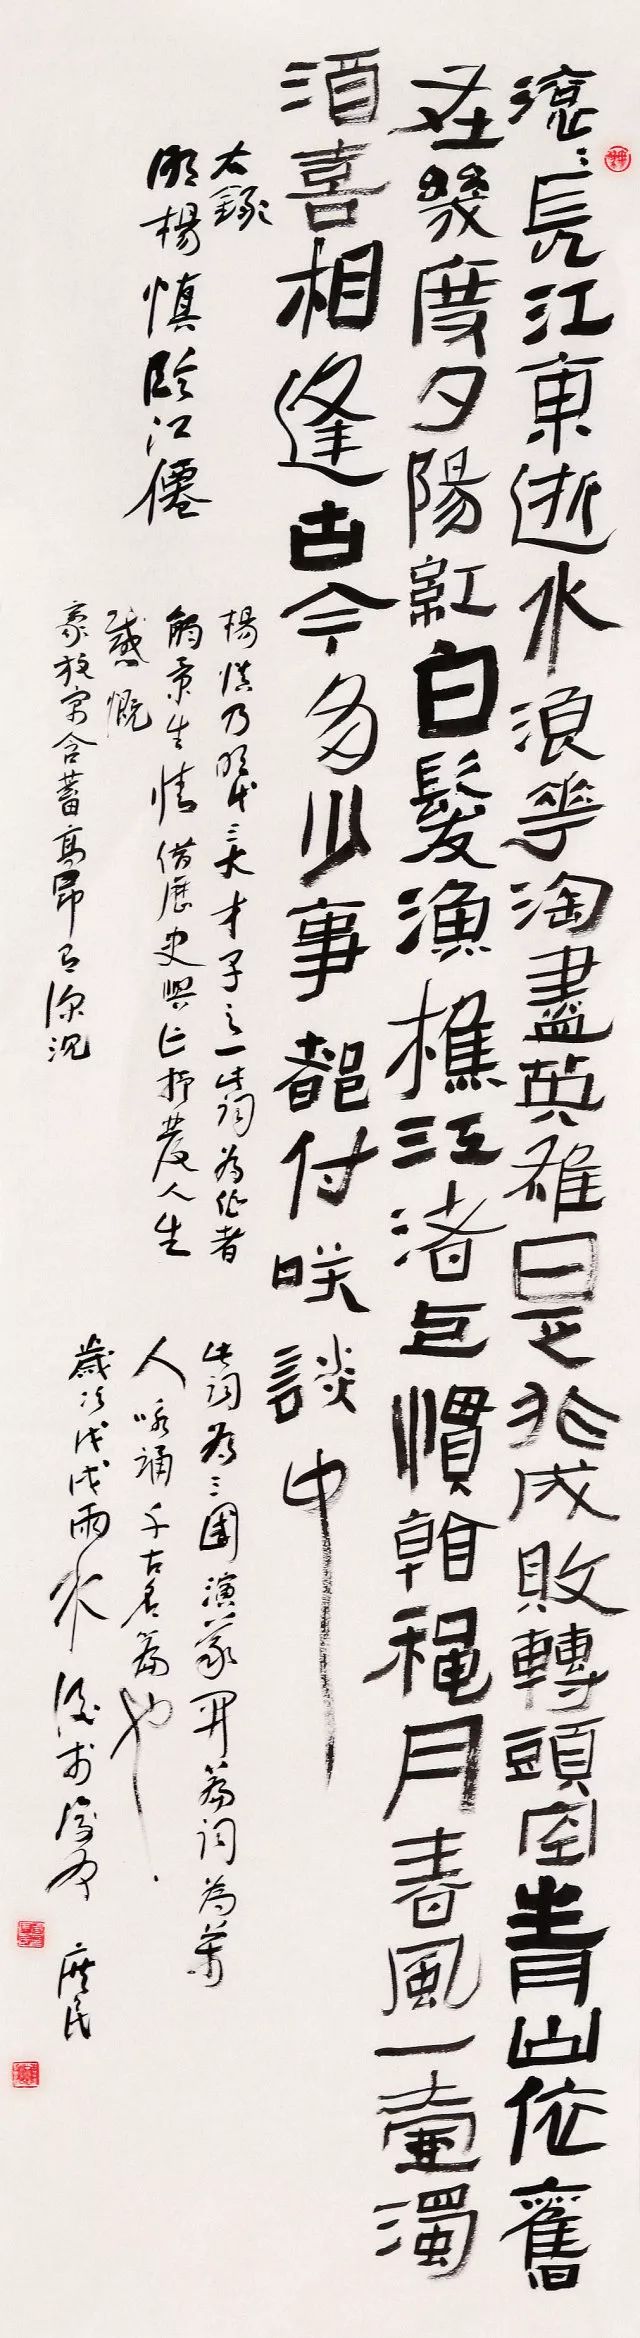 滚〻長江東逝水浪華淘盡英雄是非成敗轉頭空青山依舊
在幾度夕陽紅白髮漁樵江渚上慣看穐月春風一壺濁
酒喜相逢古今多少事都付咲談中
右錄
明楊慎臨江僊
楊慎乃明代三大才子之一此詞為作者
觸景生情借歷史興亡抒發人生
感慨
豪放寓含蓄高昂有深沉
此詞為三國演義開篇詞為萬
人咏誦千古名篇也
歲次戊戌雨水後於
庶民